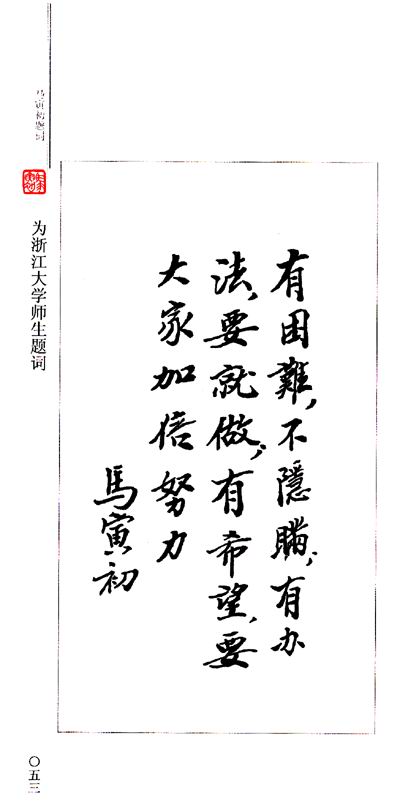 马寅初题词
为浙江大学师生题词
有困難，不隱瞞；有办
法，要就做；有希望，要
大家加倍努力
馬寅初
〇五三